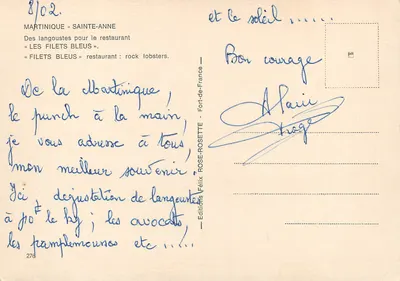 8/02.
MARTINIQUE - SAINTE-ANNE
Des langoustes pour le restaurant
« LES FILETS BLEUS ».
« FILETS BLEUS » restaurant : rock lobsters.
De la Martinique,
le punch à la main,
je vous adresse à tous,
mon meilleur souvenir.
Ici, dégustation de langoustes
à le kg ; les avocats,
les pamplemousses etc .....
278
Editions Félix ROSE-ROSETTE - Fort-de-France
et le soleil ......
Bon courage
Alain